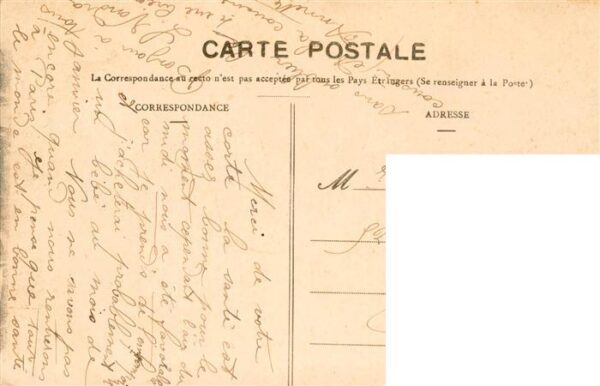 CARTE POSTALE
La Correspondance au recto n'est pas acceptée par tous les Pays Étrangers (Se renseigner à la Poste)
CORRESPONDANCE
ADRESSE
M
Merci de votre
carte la santé est
assez bonne pour le
moment cependant l'air du
midi nous a été favorable
car je prends de
et j'achèterai probablement
un bébé au mois de
Janvier Nous ne savons pas
encore quand nous rentrerons
à Paris, je pense que tout
le monde est en bonne santé
Bonjour à